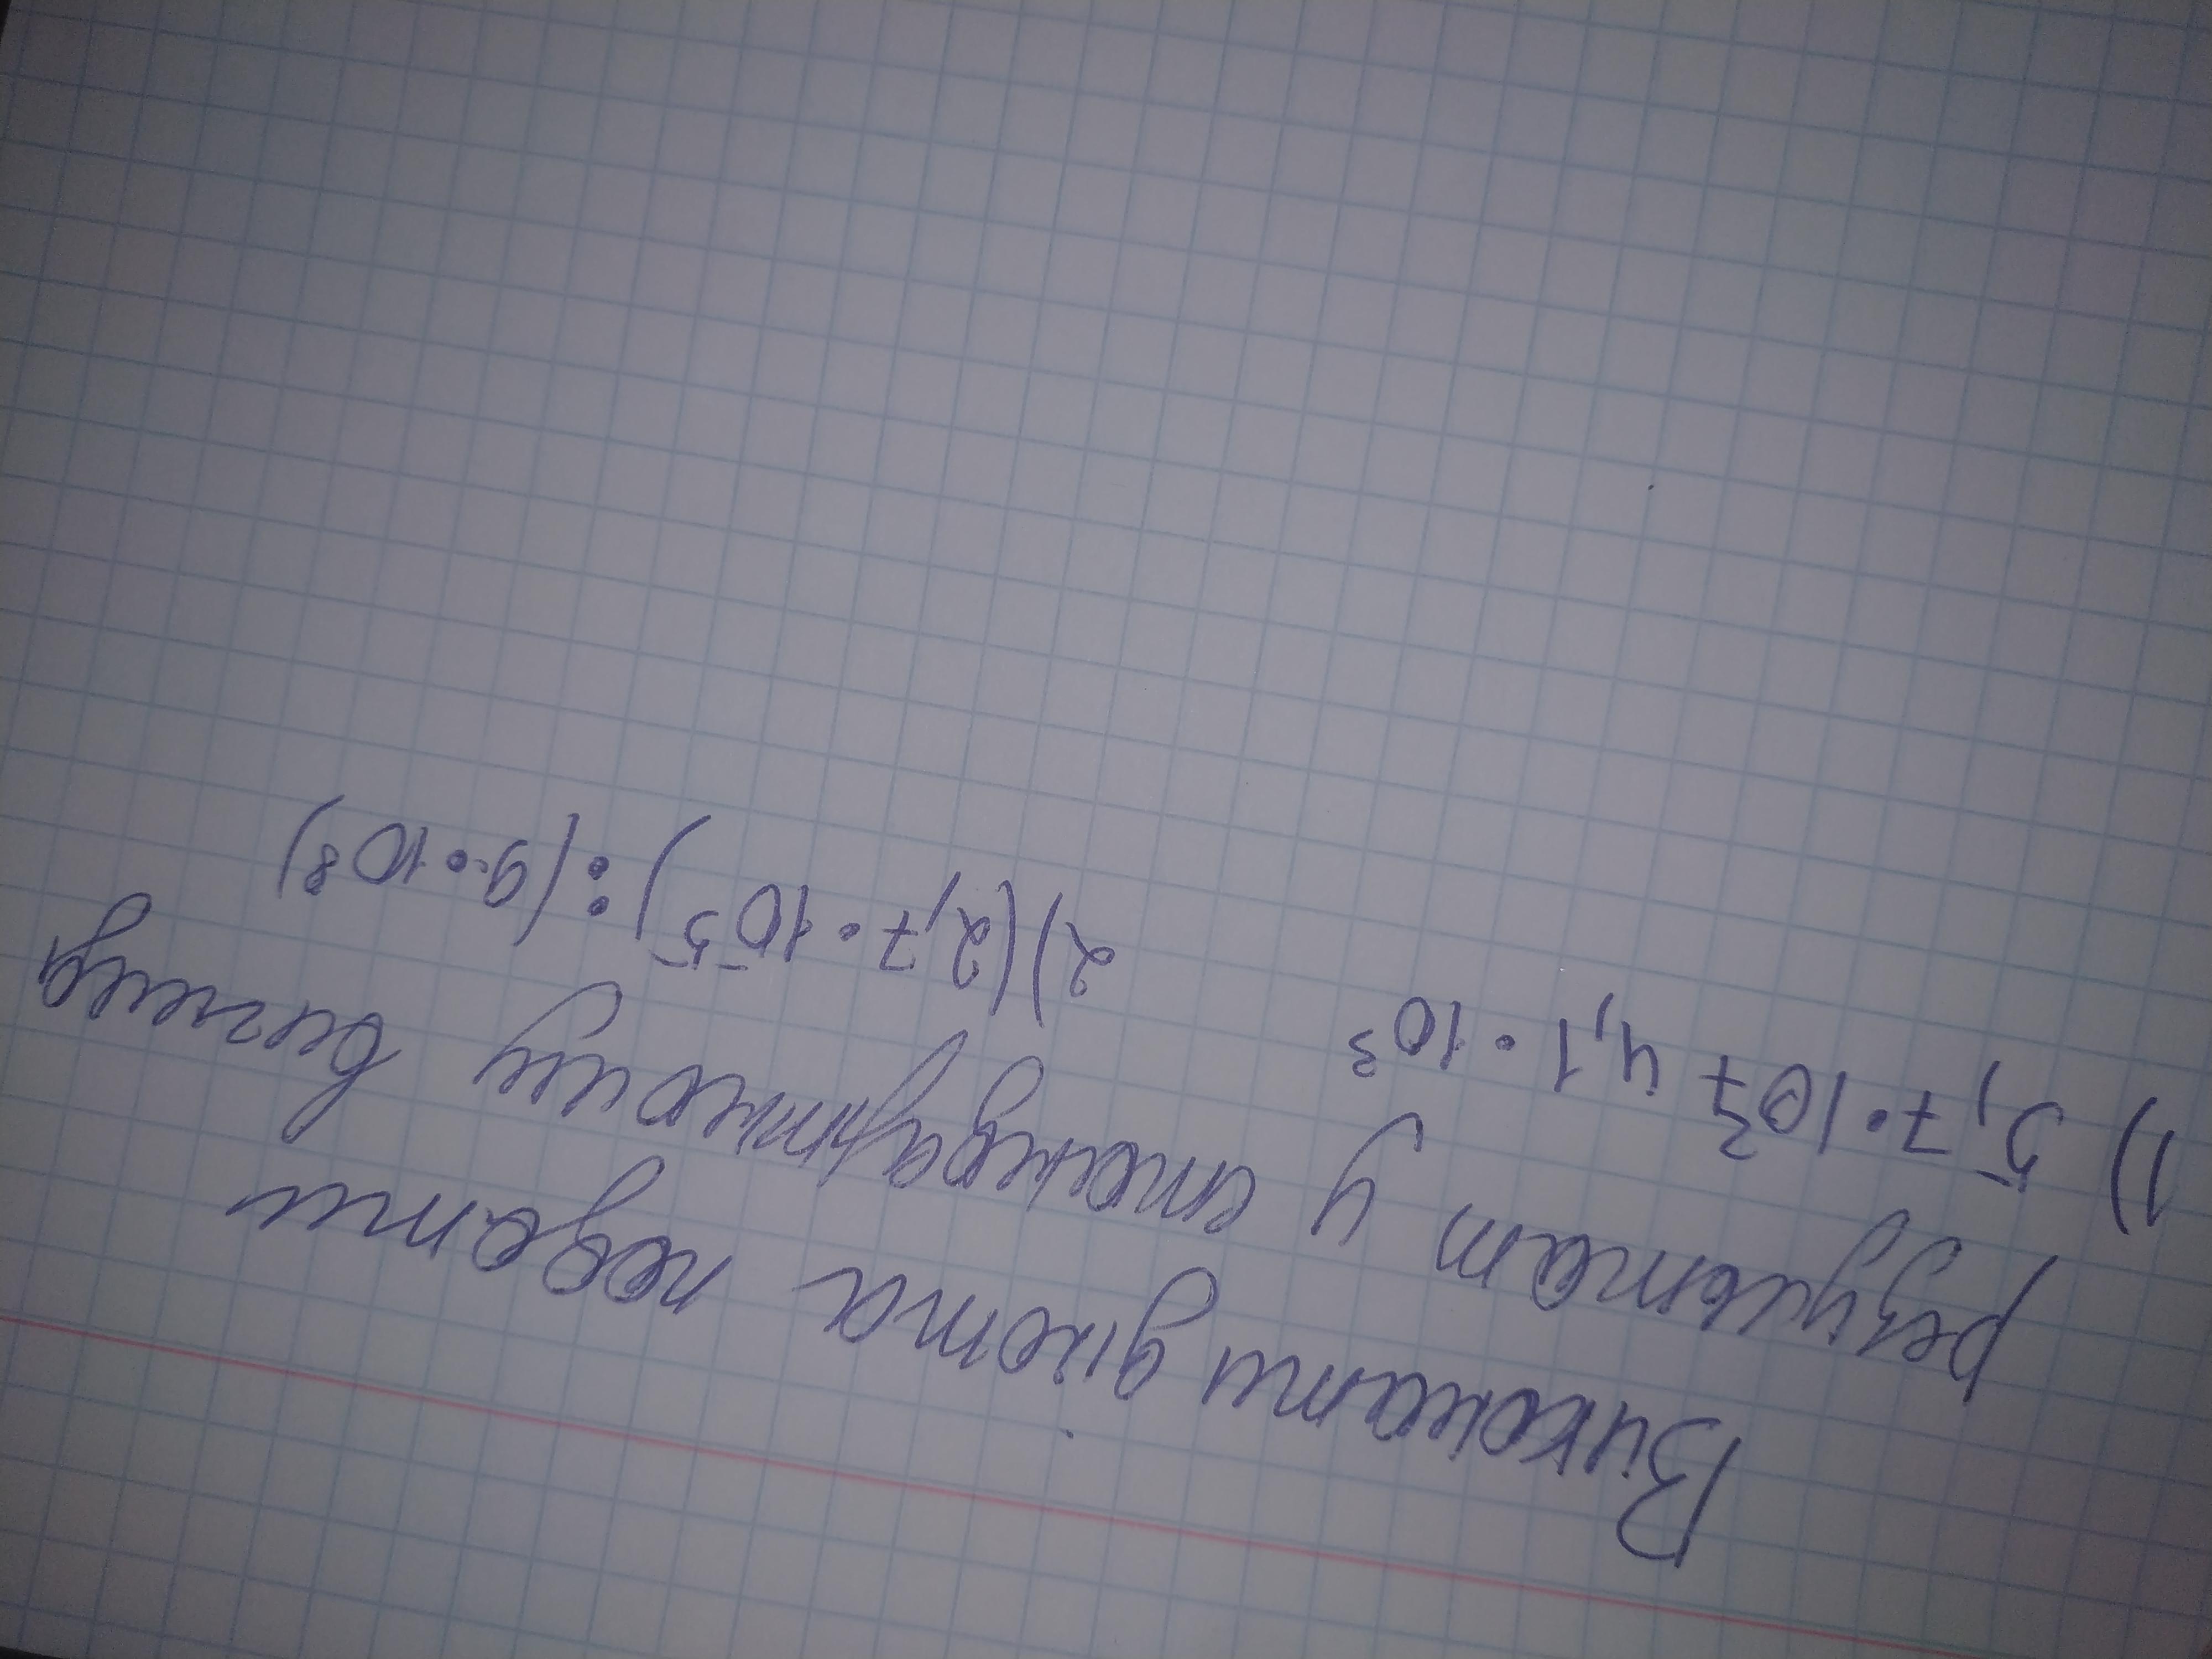 Виконати дії та подати
результат у стандартному вигляді
1) 5,7 • 10³ + 4,1 • 10³
2) (2,7 • 10⁻⁵) : (9 • 10⁸)